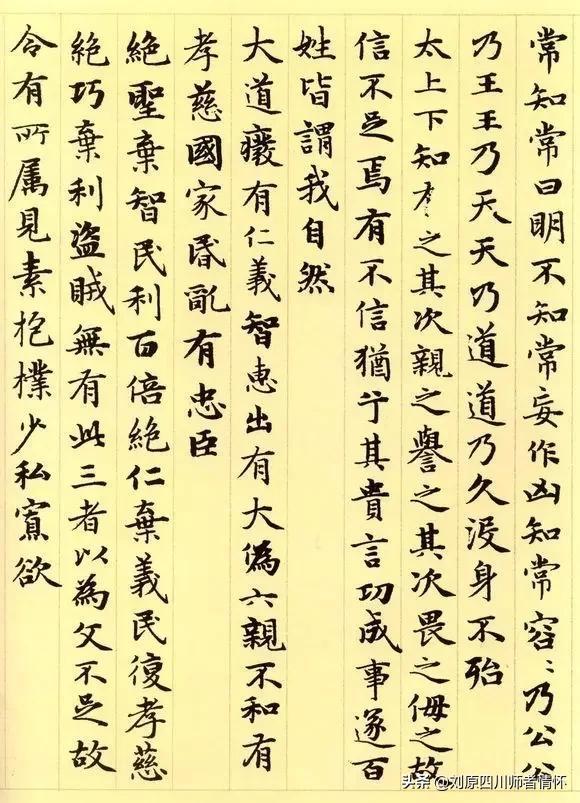 常知常曰明不知常妄作凶知常容〻乃公公
乃王王乃天天乃道道乃久没身不殆
太上下知有之其次親之譽之其次畏之侮之故
信不足焉有不信猶乎其貴言功成事遂百
姓皆謂我自然
大道癈有仁義智惠出有大偽六親不和有
孝慈國家昏亂有忠臣
絕聖棄智民利百倍絕仁棄義民復孝慈
絕巧棄利盜賊無有此三者以為文不足故
令有所屬見素抱樸少私寡欲
头条 @刘原四川师者情怀